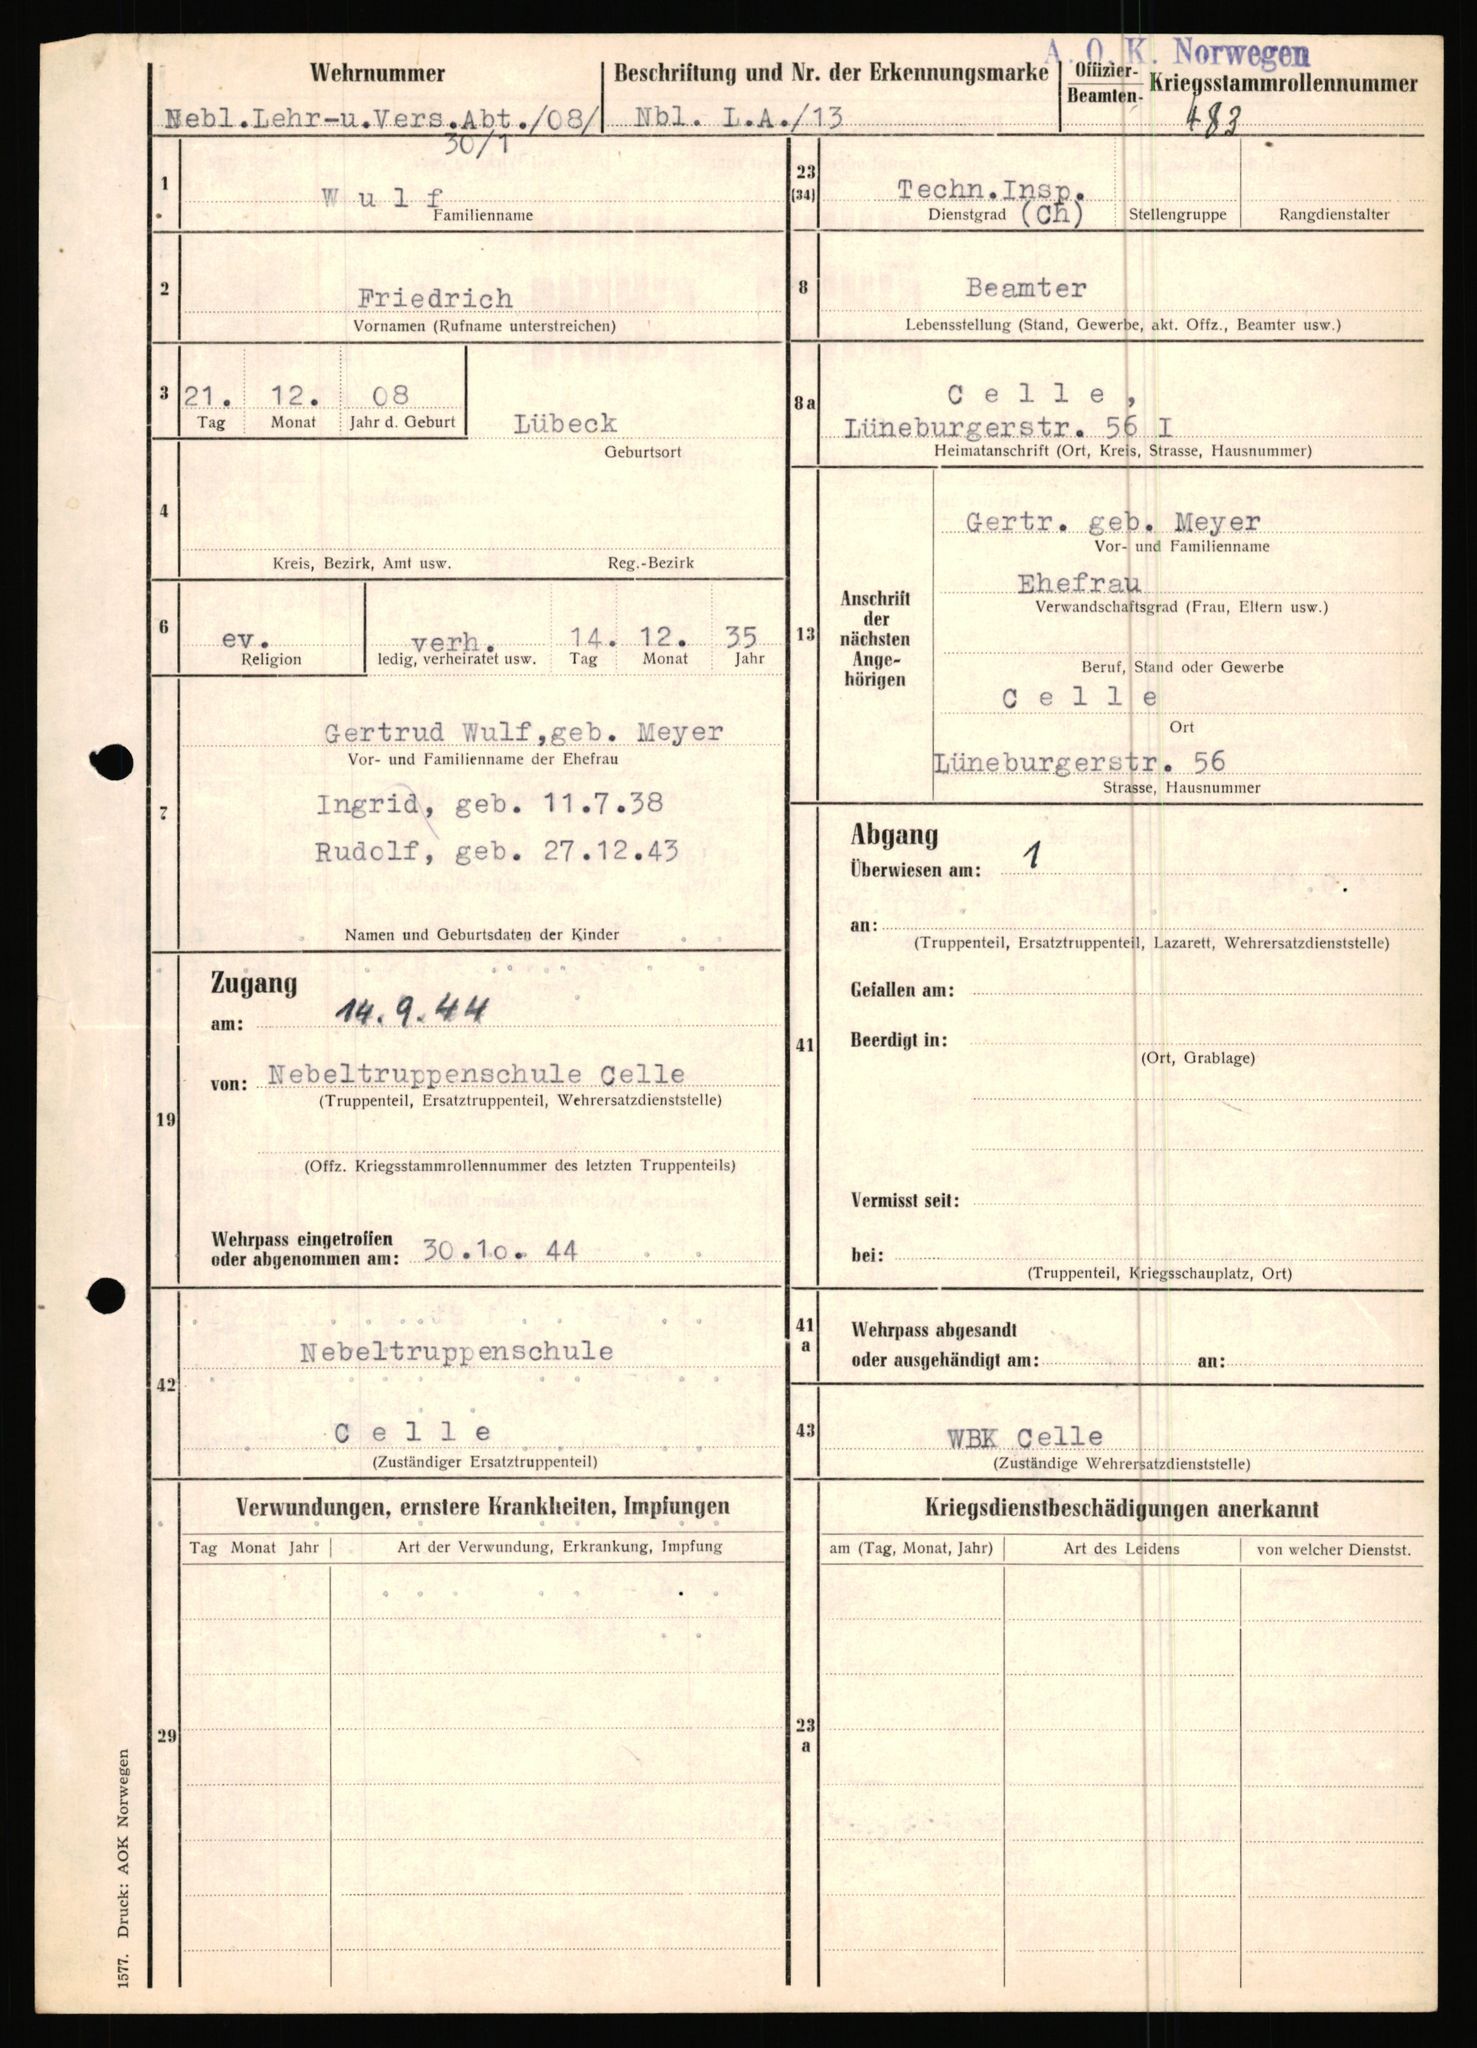 A. O. K. Norwegen
Wehrnummer
Nebl.Lehr-u.Vers.Abt./08/
30/1
Beschriftung und Nr. der Erkennungsmarke
Nbl. L.A./13
Offizier-
Beamten-
Kriegsstammrollennummer
483
1
Wulf
Familienname
2
Friedrich
Vornamen (Rufname unterstreichen)
3
21. 12. 08
Tag Monat Jahr d. Geburt
Lübeck
Geburtsort
4
Kreis, Bezirk, Amt usw. Reg.-Bezirk
6
ev. verh. 14. 12. 35
Religion ledig, verheiratet usw. Tag Monat Jahr
7
Gertrud Wulf,geb. Meyer
Vor- und Familienname der Ehefrau
Ingrid, geb. 11.7.38
Rudolf, geb. 27.12.43
Namen und Geburtsdaten der Kinder
19
Zugang
am: 14.9.44
von: Nebeltruppenschule Celle
(Truppenteil, Ersatztruppenteil, Wehrersatzdienststelle)
(Offz. Kriegsstammrollennummer des letzten Truppenteils)
Wehrpass eingetroffen
oder abgenommen am: 30.10. 44
42
Nebeltruppenschule
Celle
(Zuständiger Ersatztruppenteil)
29
Verwundungen, ernstere Krankheiten, Impfungen
Tag Monat Jahr Art der Verwundung, Erkrankung, Impfung
23
(34)
Techn.Insp.
Dienstgrad (Ch) Stellengruppe Rangdienstalter
8
Beamter
Lebensstellung (Stand, Gewerbe, akt. Offz., Beamter usw.)
8a
Celle,
Lüneburgerstr. 56 I
Heimatanschrift (Ort, Kreis, Strasse, Hausnummer)
13
Anschrift
der
nächsten
Ange-
hörigen
Gertr. geb. Meyer
Vor- und Familienname
Ehefrau
Verwandschaftsgrad (Frau, Eltern usw.)
Beruf, Stand oder Gewerbe
Celle
Ort
Lüneburgerstr. 56
Strasse, Hausnummer
41
Abgang
Überwiesen am: 1
an:
(Truppenteil, Ersatztruppenteil, Lazarett, Wehrersatzdienststelle)
Gefallen am:
Beerdigt in:
(Ort, Grablage)
Vermisst seit:
bei:
(Truppenteil, Kriegsschauplatz, Ort)
41
a
Wehrpass abgesandt
oder ausgehändigt am: an:
43
WBK Celle
(Zuständige Wehrersatzdienststelle)
23
a
Kriegsdienstbeschädigungen anerkannt
am (Tag, Monat, Jahr) Art des Leidens von welcher Dienstst.
1577. Druck: AOK Norwegen